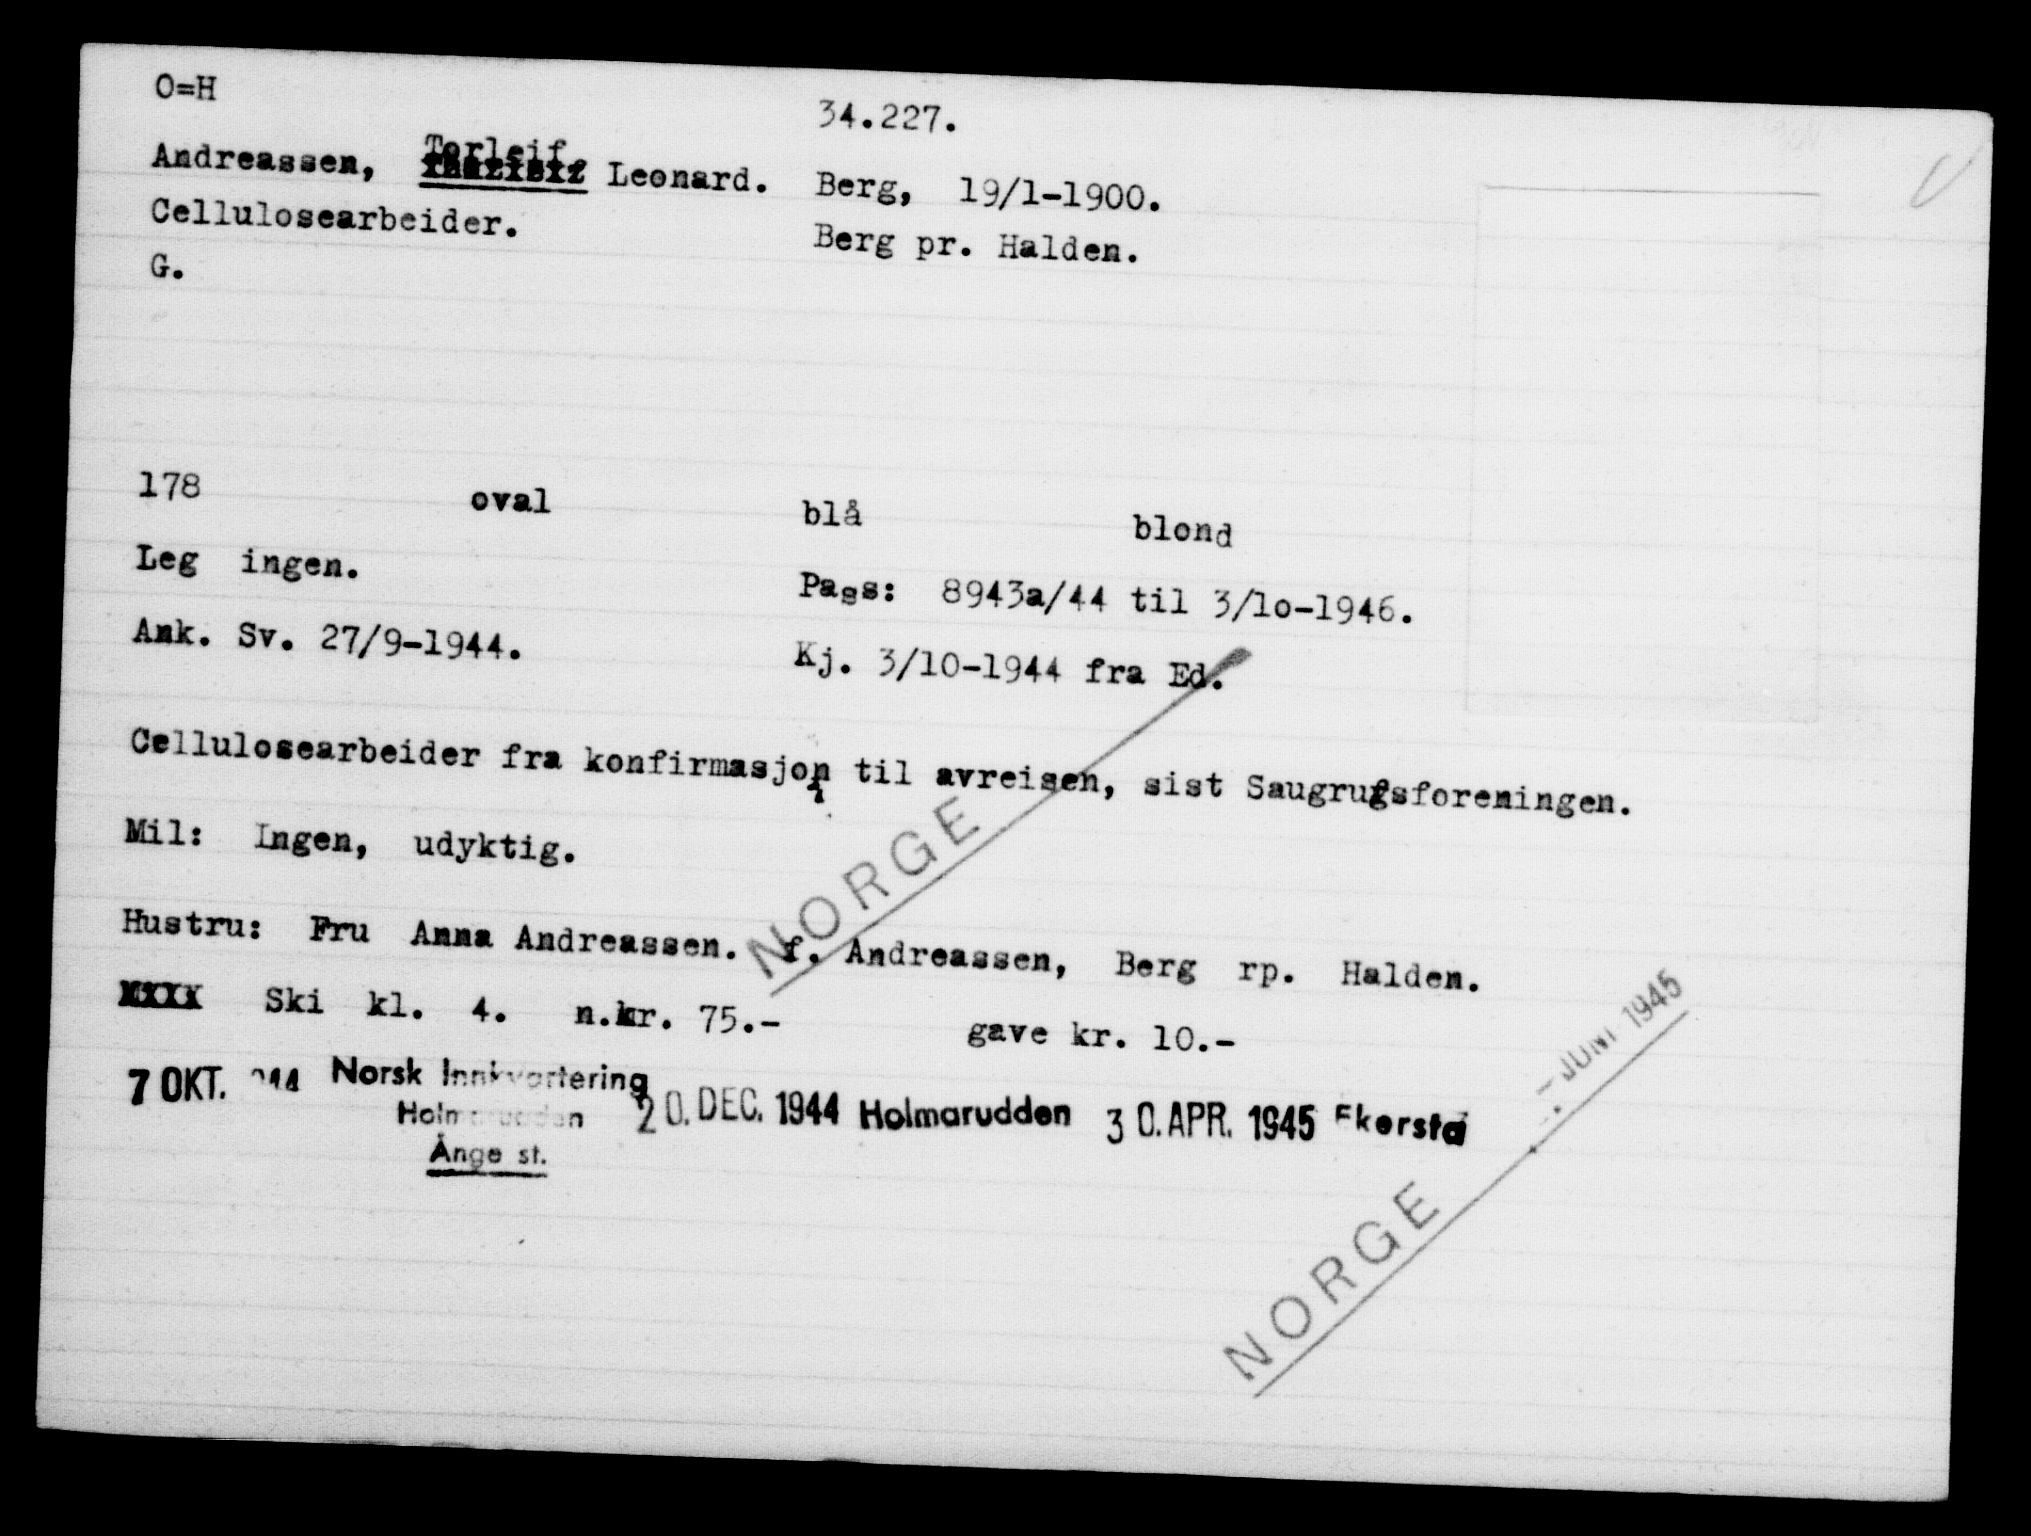 O=H
34.227.
Andreassen, Torleif Leonard. Berg, 19/1-1900.
Cellulosearbeider. Berg pr. Halden.
G.
178 oval blå blond
Leg ingen. Pass: 8943a/44 til 3/10-1946.
Ank. Sv. 27/9-1944. Kj. 3/10-1944 fra Ed.
Cellulosearbeider fra konfirmasjon til avreisen, sist Saugrugsforeningen.
Mil: Ingen, udyktig.
Hustru: Fru Anna Andreassen. f. Andreassen, Berg rp. Halden.
Ski kl. 4. n.kr. 75.- gave kr. 10.-
7 OKT. 944 Norsk Innkvartering 20. DEC. 1944 Holmarudden 30. APR. 1945 Ekersta
Holmarudden
Ånge st.
NORGE
NORGE
- JUNI 1945